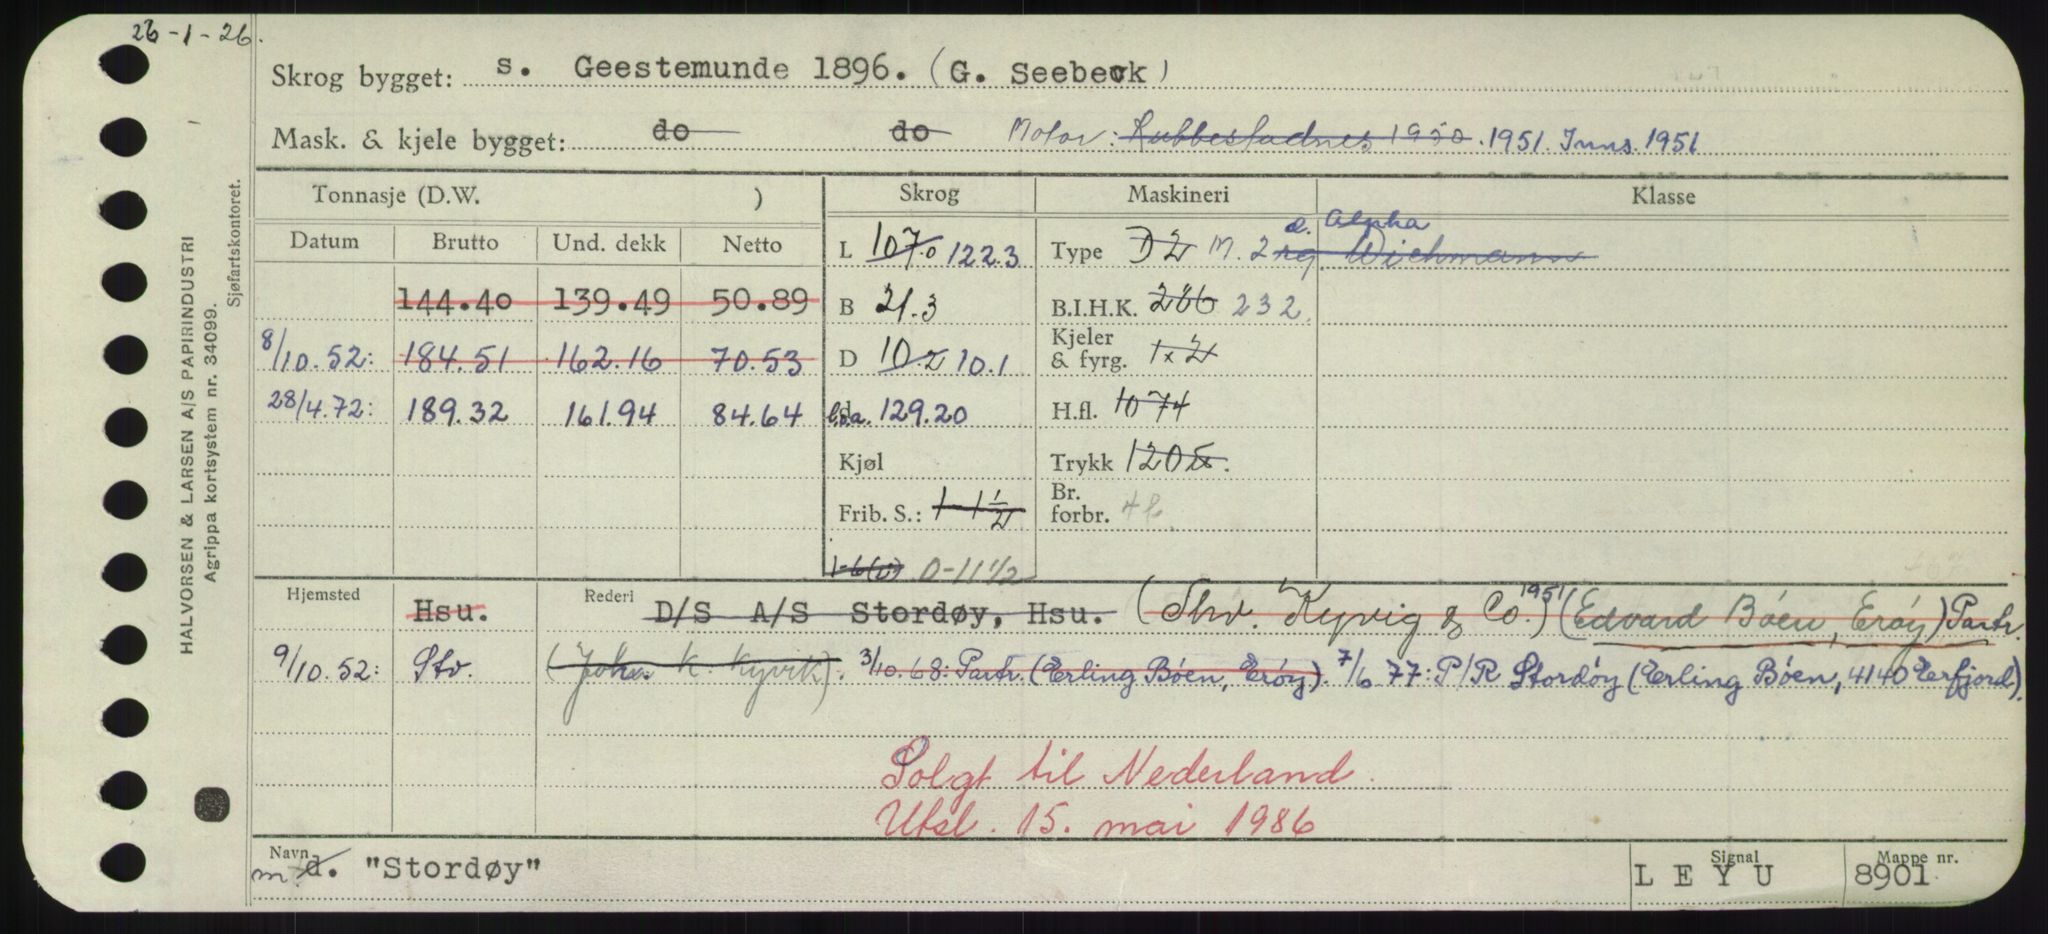 26-1-26.
Skrog bygget: s. Geestemunde 1896. (G. Seebeck)
Mask. & kjele bygget: do do Motor: Rubbestadnes 1950. 1951. Inns. 1951
Tonnasje (D.W. ) Skrog Maskineri Klasse
Datum Brutto Und. dekk Netto L 107.0 122.3 Type D2 M. 2 rg. Wichmann d. Alpha
144.40 139.49 50.89 B 21.3 B.I.H.K. 266 232
8/10.52: 184.51 162.16 70.53 D 10.2 10.1 Kjeler & fyrg. 1x2
28/4.72: 189.32 161.94 84.64 l.o.a. 129.20 H.fl. 1074
Kjøl Trykk 120
Frib. S.: 1-1 1/2 Br. forbr. 4
1-6(v) 0-11 1/2
Hjemsted Hsu. Rederi D/S A/S Stordøy, Hsu. (Thv. Kyvig & Co.) 1951 (Edvard Bøen, Erøy) Partr.
9/10.52: Stv. (John K. Kyvik). 3/10.68: Partr. (Erling Bøen, Erøy). 7/6 77: P/R Stordøy (Erling Bøen, 4140 Erfjord).
Solgt til Nederland.
Utsl. 15. mai 1986
Navn m. d. "Stordøy" Signal L E Y U Mappe nr. 8901
HALVORSEN & LARSEN A/S PAPIRINDUSTRI
Agrippa kortsystem nr. 34099.
Sjøfartskontoret.